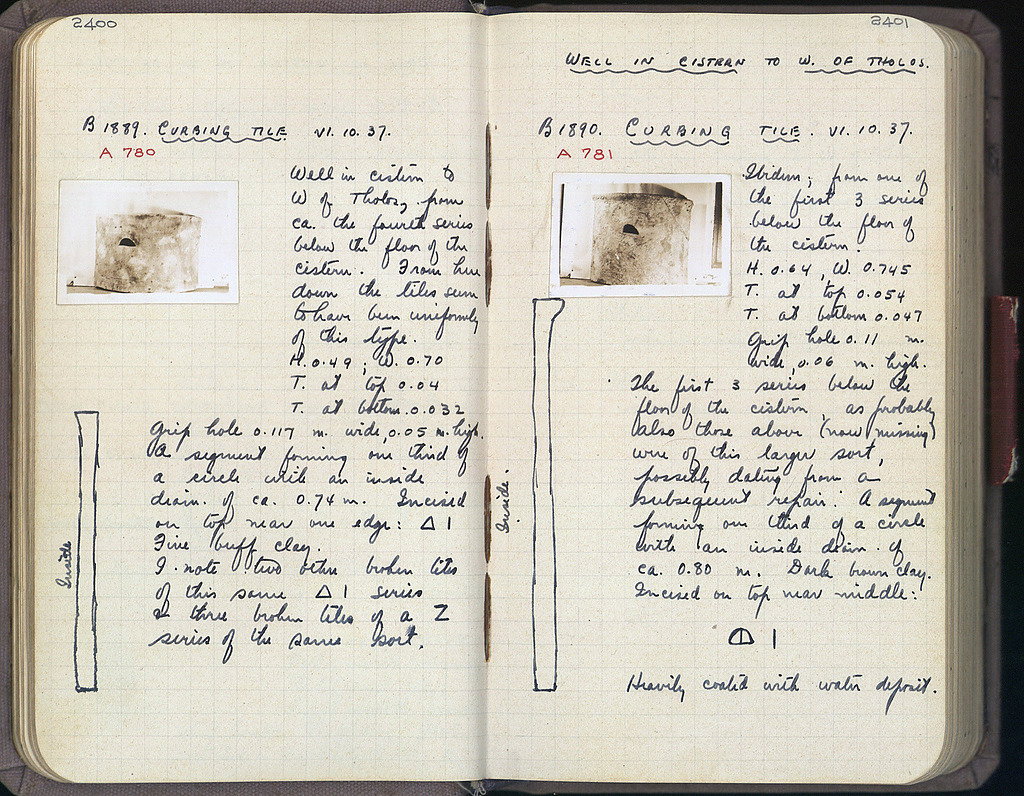 2400
B 1889. CURBING TILE. VI. 10. 37.
A 780
Well in cistern to
W of Tholos, from
ca. the fourth series
below the floor of the
cistern. From here
down the tiles seem
to have been uniformly
of this type.
H. 0.49 ; W. 0.70
T. at top 0.04
T. at bottom 0.032
Grip hole 0.117 m. wide, 0.05 m. high.
A segment forming one third of
a circle with an inside
diam. of ca. 0.74 m. Incised
on top near one edge: Δ I
Fine buff clay.
I note two other broken tiles
of this same Δ I series
& three broken tiles of a Z
series of the same sort.
Inside
2401
WELL IN CISTERN TO W. OF THOLOS.
B 1890. CURBING TILE. VI. 10. 37.
A 781
Ibidem; from one of
the first 3 series
below the floor of
the cistern.
H. 0.64, W. 0.745
T. at top 0.054
T. at bottom 0.047
Grip hole 0.11 m.
wide, 0.06 m. high.
The first 3 series below the
floor of the cistern, as probably
also those above (now missing)
were of this larger sort,
possibly dating from a
subsequent repair. A segment
forming one third of a circle
with an inside diam. of
ca. 0.80 m. Dark brown clay.
Incised on top near middle:
I
Heavily coated with water deposit.
Inside.